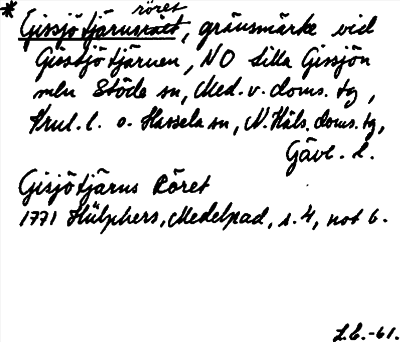 * Gissjötjärnsröset, gränsmärke vid
Gissjötjärnen, NO Lilla Gissjön
mln Stöde sn, Med. v. doms. tg,
Vrnl. l. o. Hassela sn, N. Häls. doms. tg,
Gävl. l.
Gisjötjärns Röret
1771 Hülphers, Medelpad, s. 4, not 6.
L.E.-61.